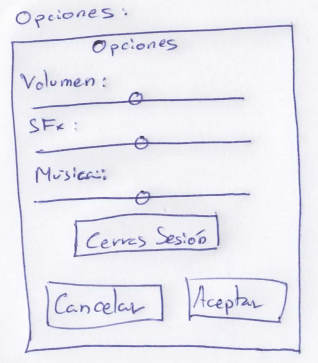 Opciones:
Opciones
Volumen:
SFx:
Música:
Cerrar Sesión
Cancelar Aceptar